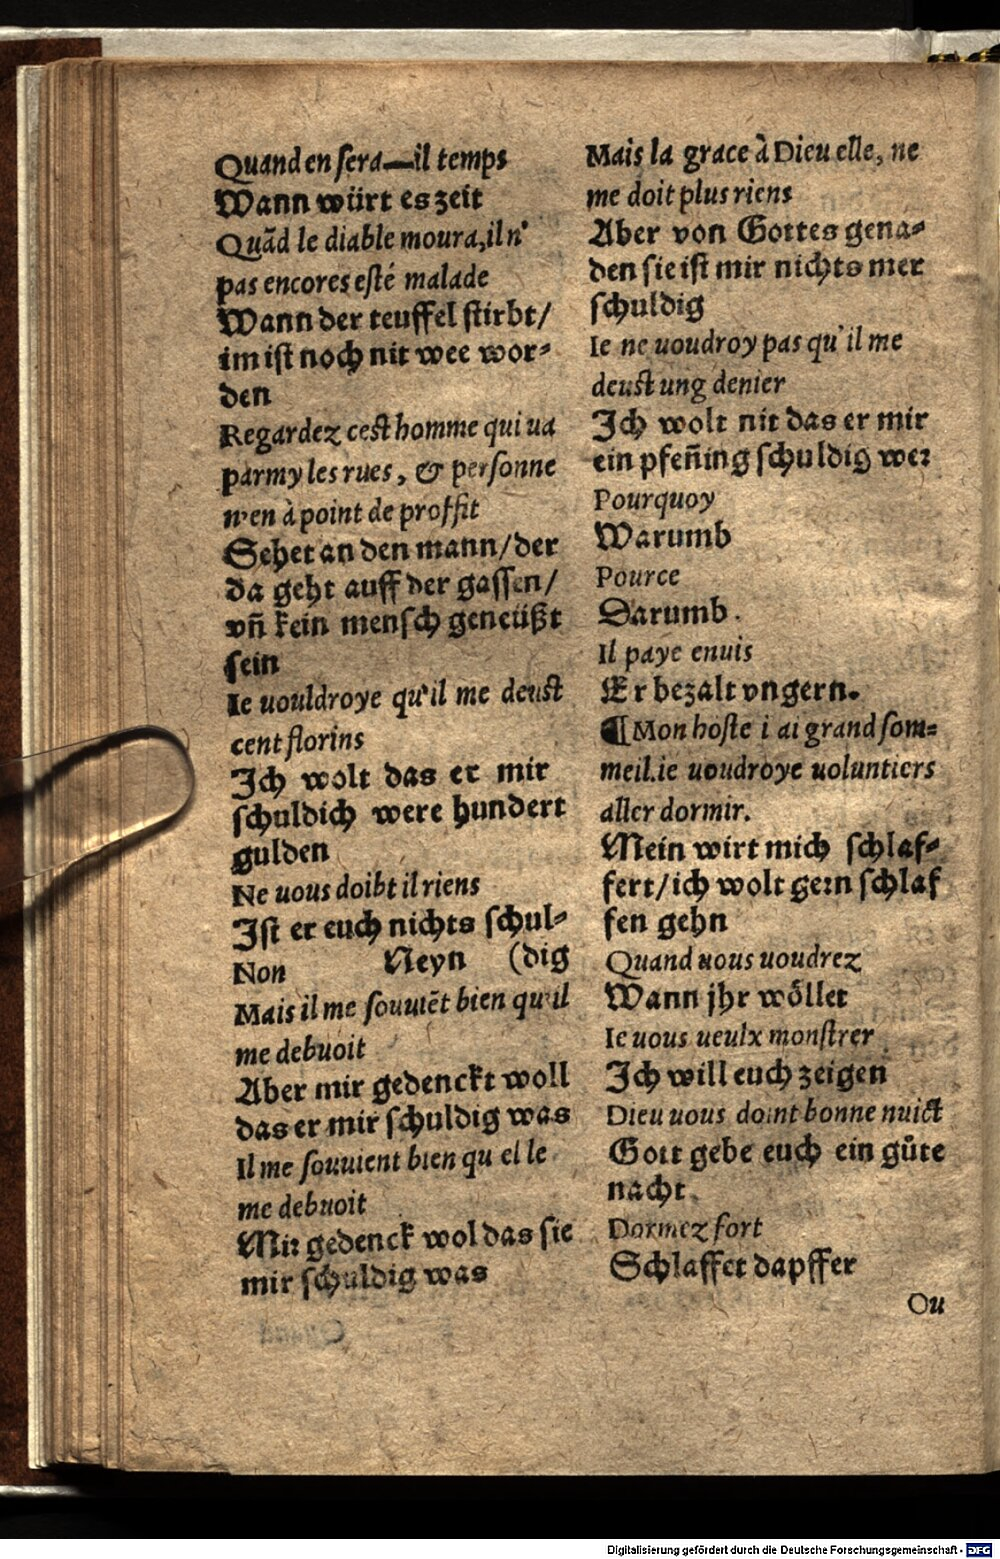 Quand en sera—il temps
Wann würt es zeit
Quãd le diable moura, il n'
pas encores esté malade
Wann der teuffel stirbt/
im ist noch nit wee wor⸗
den
Regardez cest homme qui ua
parmy les rues, & personne
n'en à point de proffit
Sehet an den mann/der
da geht auff der gassen/
vñ kein mensch geneüßt
sein
Ie uouldroye qu'il me deust
cent florins
Ich wolt das er mir
schuldich were hundert
gulden
Ne uous doibt il riens
Ist er euch nichts schul⸗
Non Neyn (dig
Mais il me souuiẽt bien qu'il
me debuoit
Aber mir gedenckt woll
das er mir schuldig was
Il me souuient bien qu el le
me debuoit
Mir gedenck wol das sie
mir schuldig was
Mais la grace à Dieu elle, ne
me doit plus riens
Aber von Gottes gena⸗
den sie ist mir nichts mer
schuldig
Ie ne uoudroy pas qu'il me
deust ung denier
Ich wolt nit das er mir
ein pfeñing schuldig wer
Pourquoy
Warumb
Pource
Darumb.
Il paye enuis
Er bezalt vngern.
¶Mon hoste i ai grand som⸗
meil.ie uoudroye uoluntiers
aller dormir.
Mein wirt mich schlaf⸗
fert/ich wolt gern schlaf
fen gehn
Quand uous uoudrez
Wann jhr wöllet
Ie uous ueulx monstrer
Ich will euch zeigen
Dieu uous doint bonne nuict
Gott gebe euch ein gůte
nacht.
Dormez fort
Schlaffet dapffer
Ou
Digitalisierung gefördert durch die Deutsche Forschungsgemeinschaft - DFG